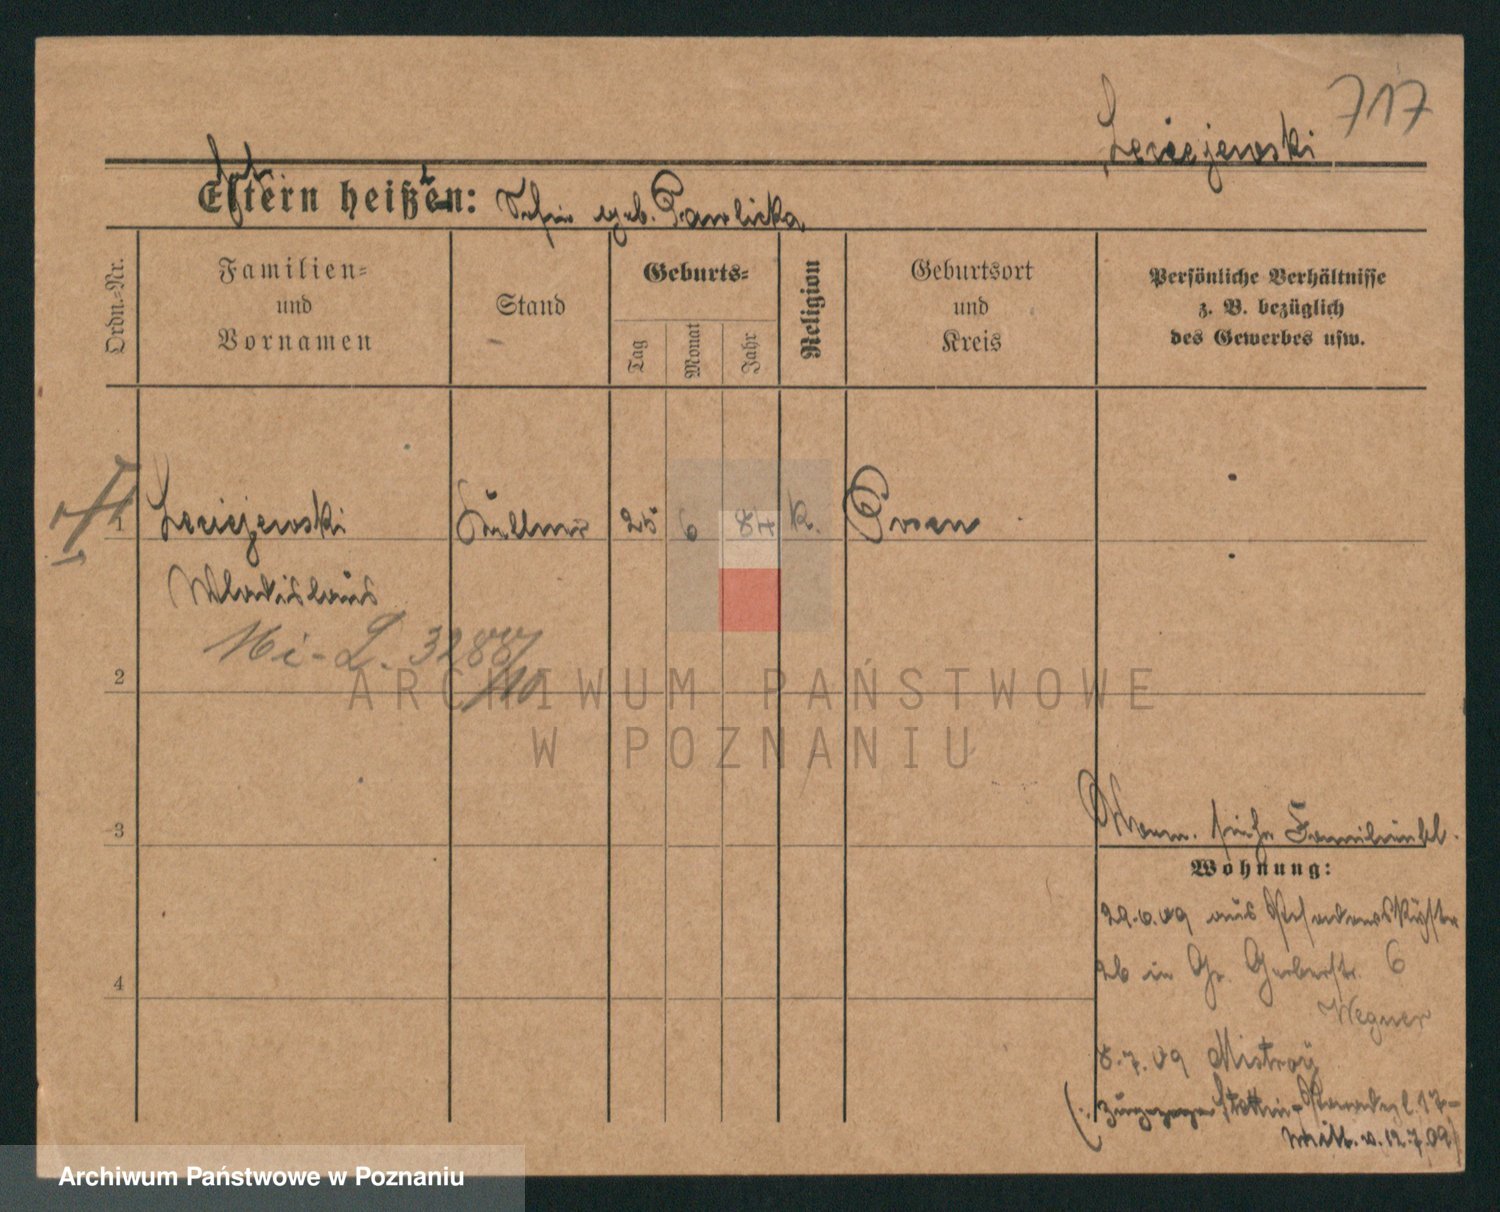 717
Leciejewski
Eltern heißen: Sofie geb. Pawlicka
Ordn.-Nr.
Familien-
und
Vornamen
Stand
Geburts-
Tag
Monat
Jahr
Religion
Geburtsort
und
Kreis
Persönliche Verhältnisse
z. B. bezüglich
des Gewerbes usw.
1 Leciejewski Kellner 25 6 84 k. Posen
Wladislaus
Mi-L. 3288/10
2
3
4
siehe Familienbl.
Wohnung:
29.6.09 aus
26 in Gr. Gerberstr. 6
Wegner
8.7.09 Misdroy
(zugezogen Stettin- 17-
Mitt. v. 12.7.09)
ARCHIWUM PAŃSTWOWE
W POZNANIU
Archiwum Państwowe w Poznaniu